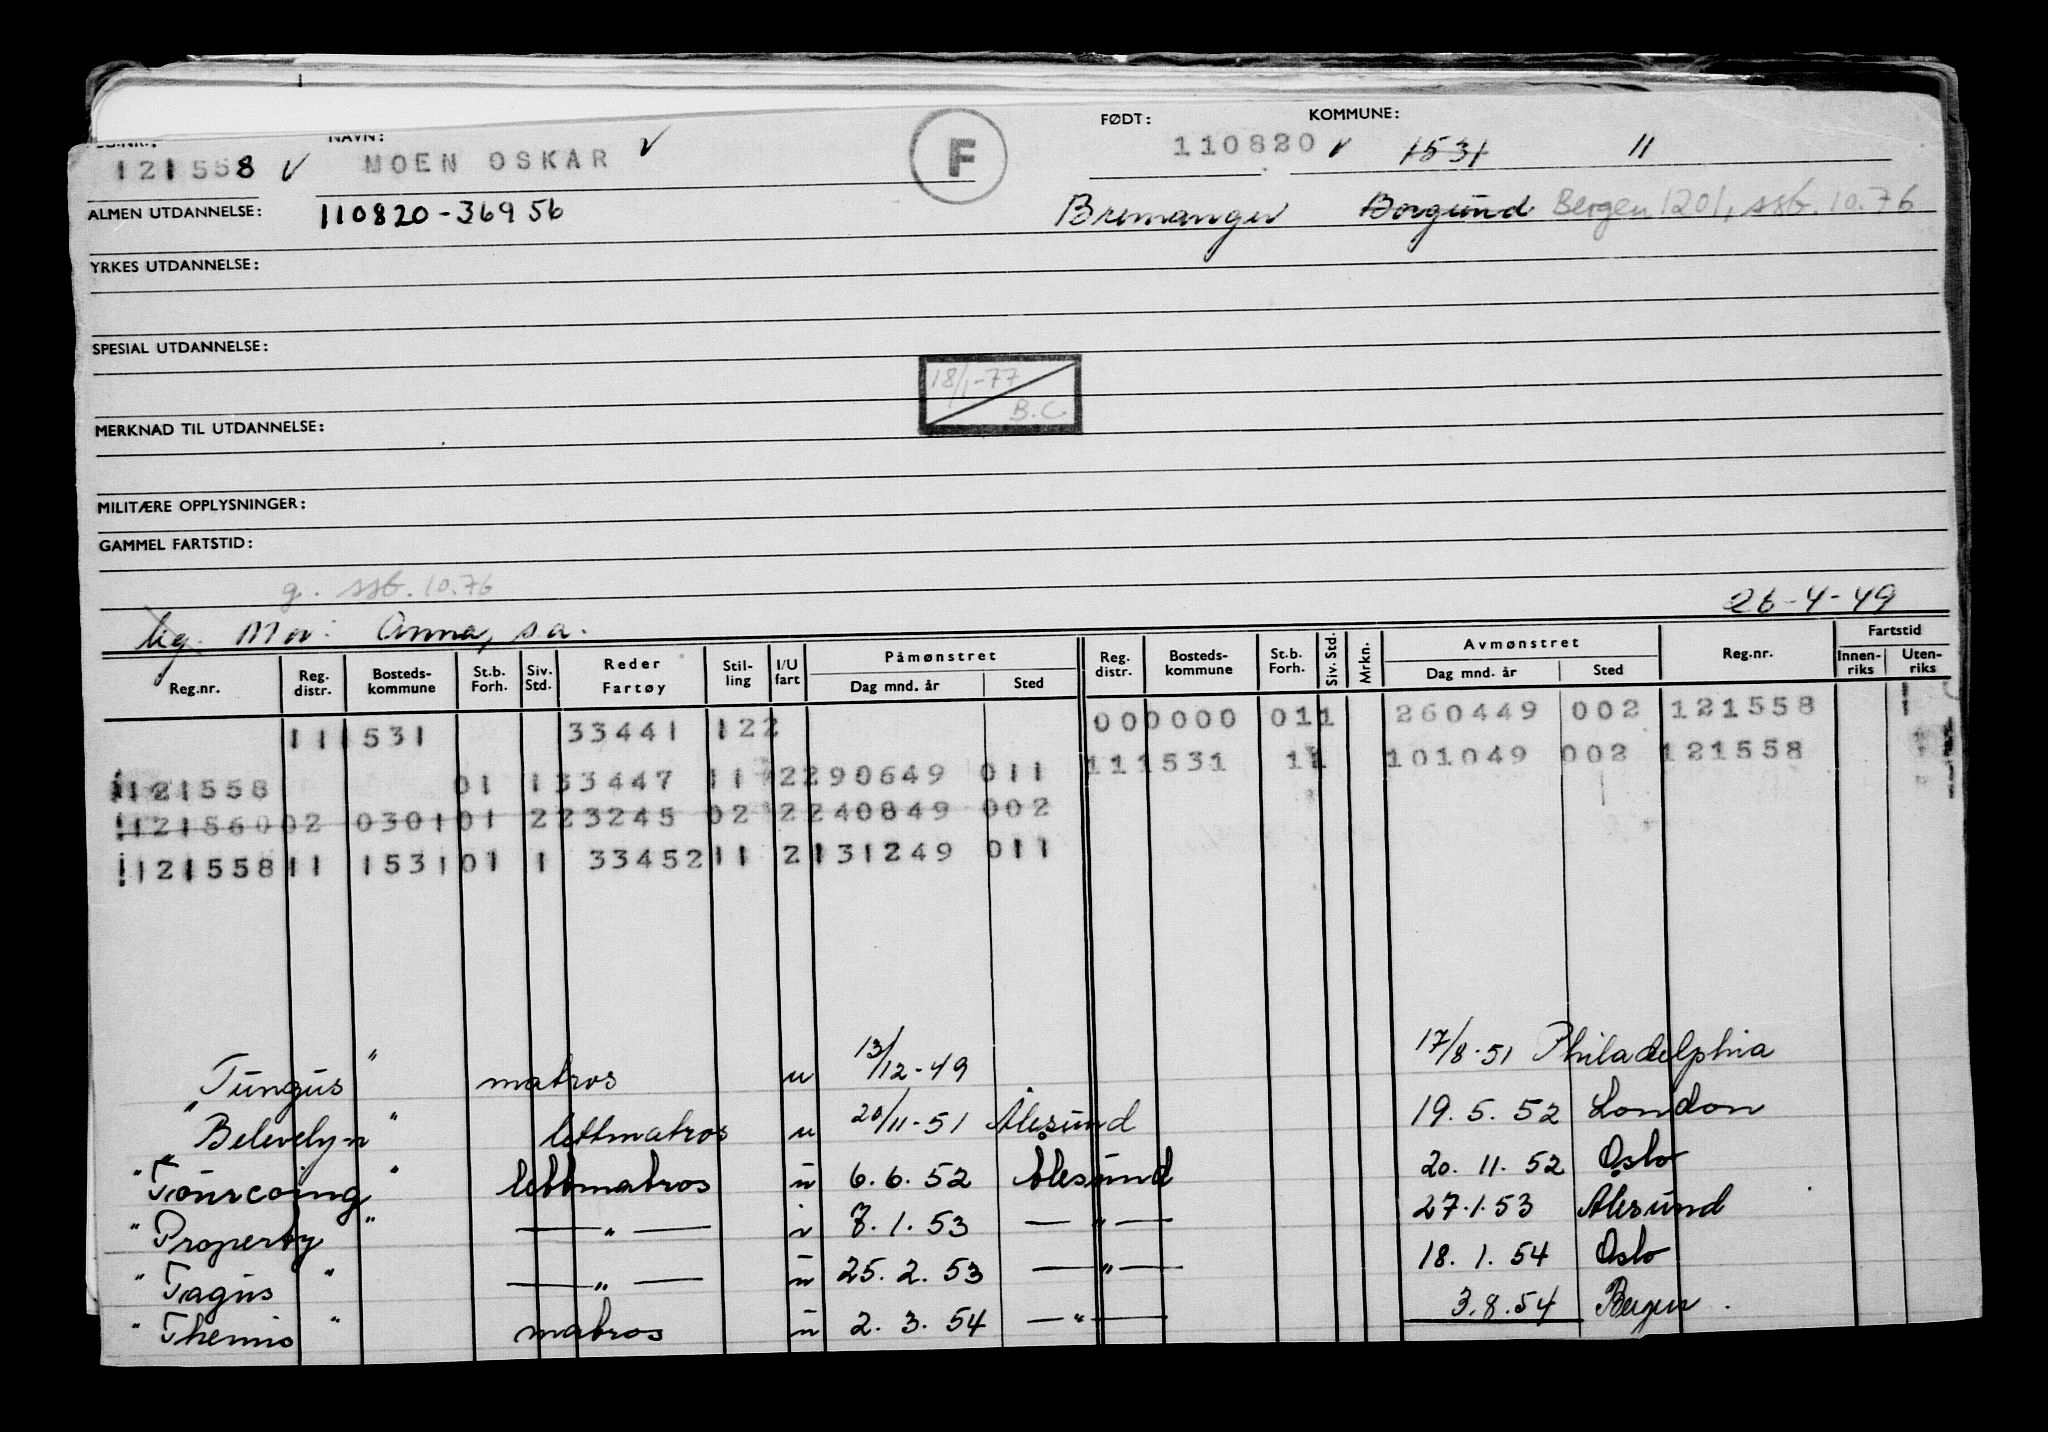 NAVN: FØDT: KOMMUNE:
121558 ✓ MOEN OSKAR ✓ F 110820 ✓ 1531 11
ALMEN UTDANNELSE: 110820-36956 Bremanger Borgund Bergen 1201, ssb. 10.76
YRKES UTDANNELSE:
SPESIAL UTDANNELSE:
18/1-77
B.C.
MERKNAD TIL UTDANNELSE:
MILITÆRE OPPLYSNINGER:
GAMMEL FARTSTID:
g. ssb. 10.76
ug. Mor: Anna, s.a. 26-4-49
Reg.nr. Reg. distr. Bosteds- kommune St.b. Forh. Siv. Std. Reder Fartøy Stil- ling I/U fart Påmønstret Dag mnd. år Sted Reg. distr. Bosteds- kommune St.b. Forh. Siv. Std. Mrkn. Avmønstret Dag mnd. år Sted Reg.nr. Fartstid Innen- riks Uten- riks
111531 33441 122 000000 011 260449 002 121558
121558 01 133447 11 2290649 011 111531 11 101049 002 121558
12156002 030101 223245 02 2240849 002
12155811 153101 1 33452 11 2131249 011
Tungus " matros u 13/12-49 17/8-51 Philadelphia
" Belevelyn " lettmatros u 20/11-51 Ålesund 19.5.52 London
" Tourcoing " lettmatros u 6.6.52 Ålesund 20.11.52 Oslo
" Property " — " — i 7.1.53 — " — 27.1.53 Ålesund
" Tagus " — " — u 25.2.53 — " — 18.1.54 Oslo
" Themis " matros u 2.3.54 — " — 3.8.54 Bergen.